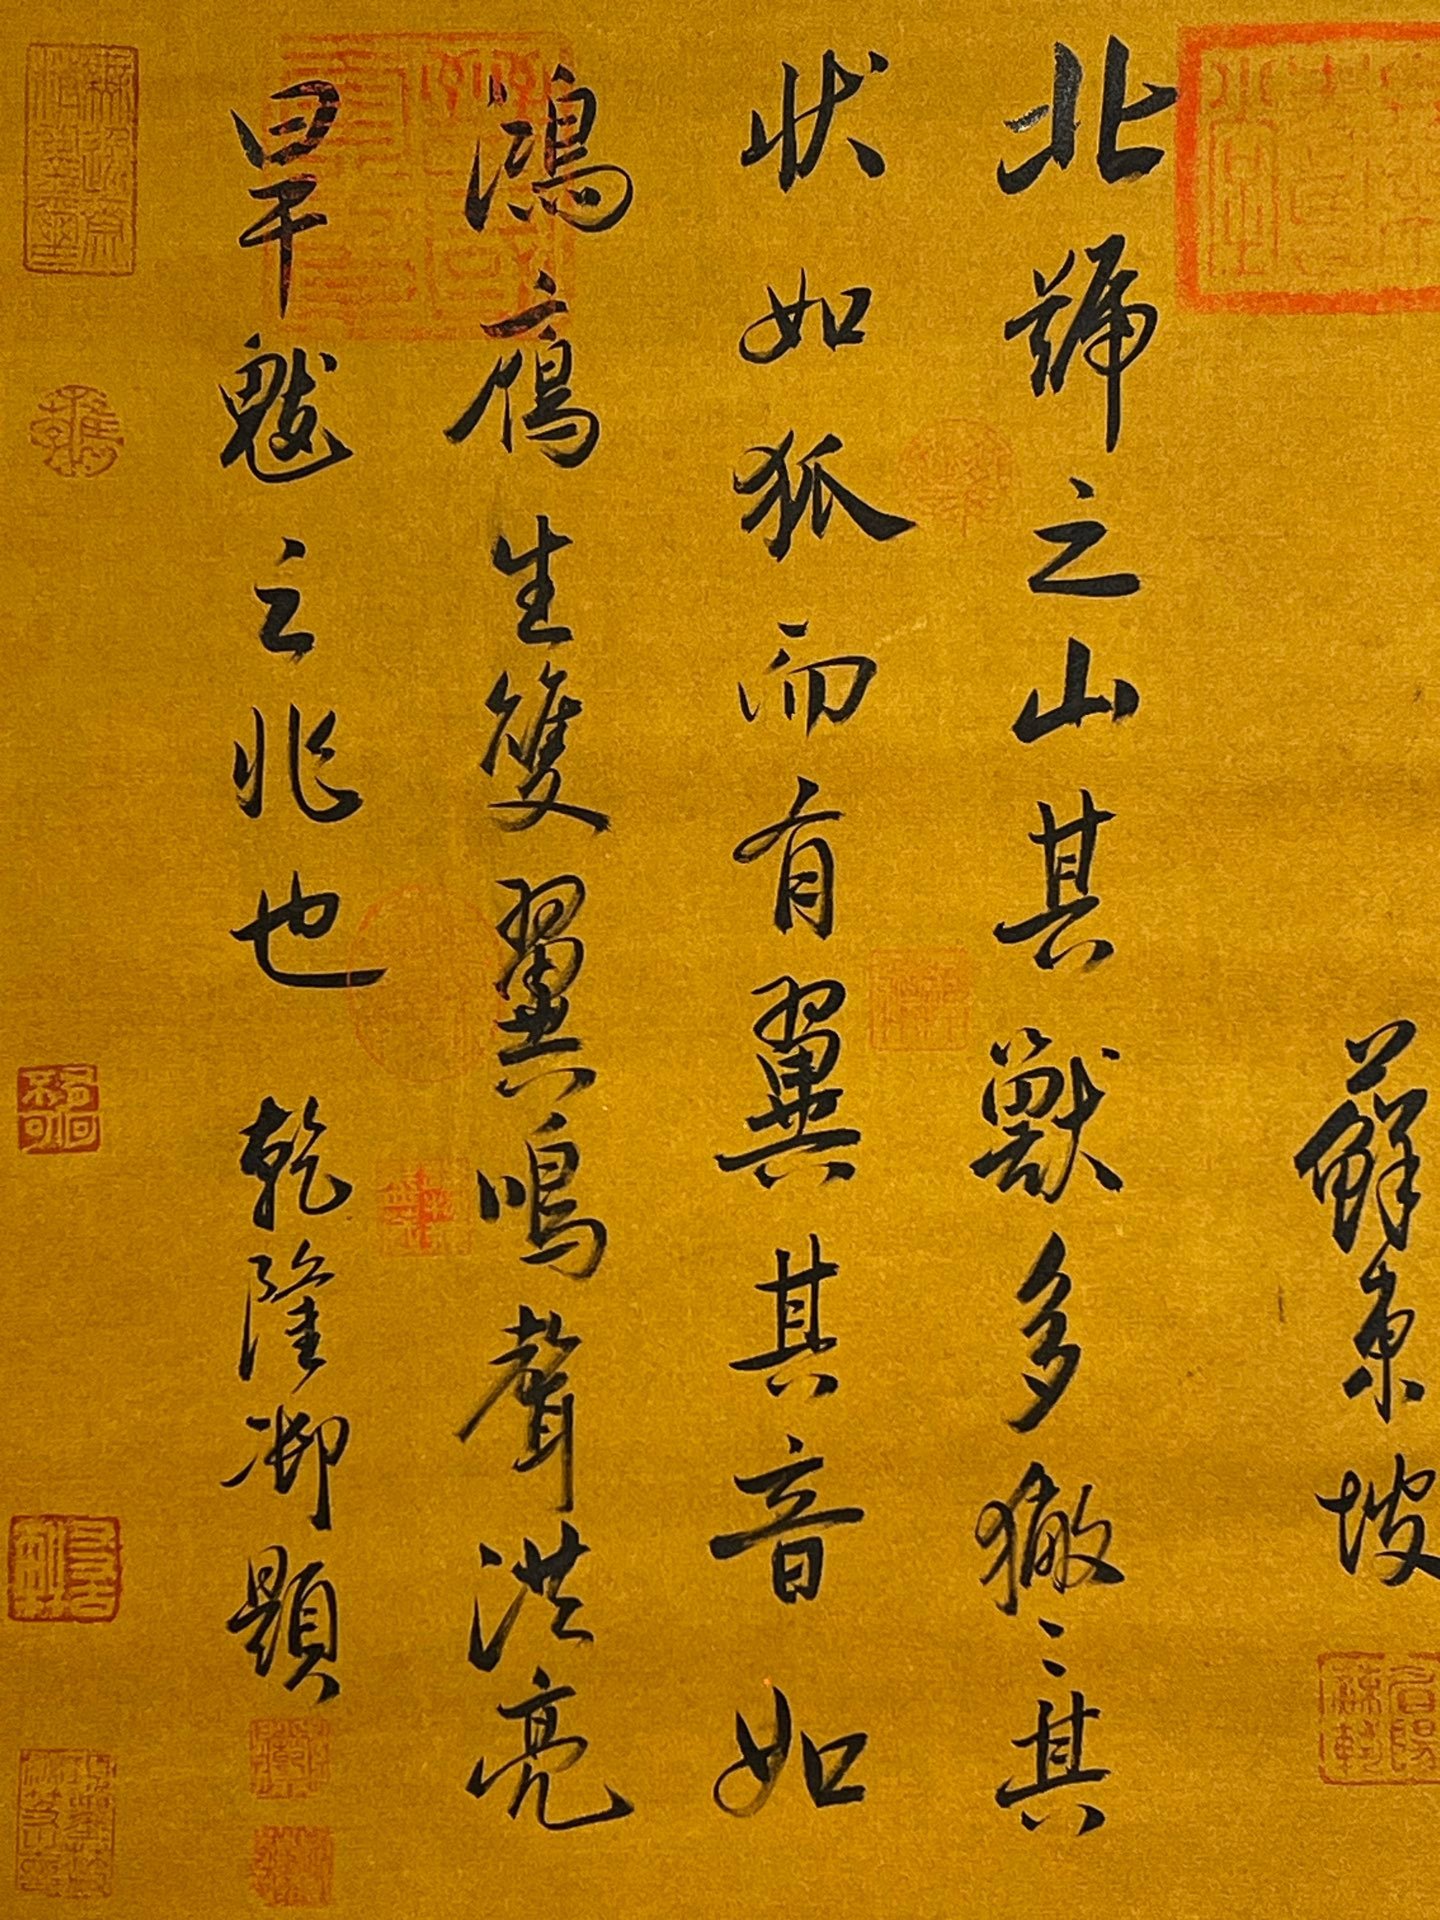 蘇東坡
北號之山其獸多獙〻其
狀如狐而有翼其音如
鴻鴈生雙翼鳴聲洪亮
旱魃之兆也 乾隆御題